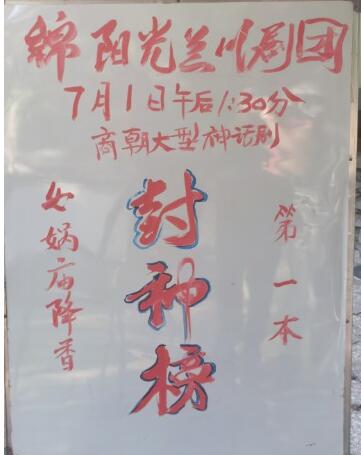 綿阳光兰川剧团
7月1日午后1:30分
商朝大型神话剧
第一本
封神榜
女娲庙降香